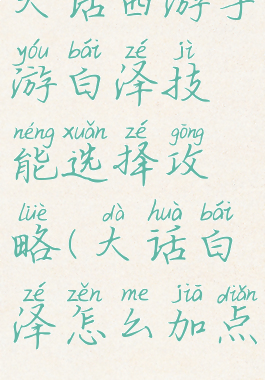 大话西游手
yóu bái zé jì
游白泽技
néng xuǎn zé gōng
能选择攻
lüè dà huà bái
略(大话白
zé zěn me jiā diǎn
泽怎么加点